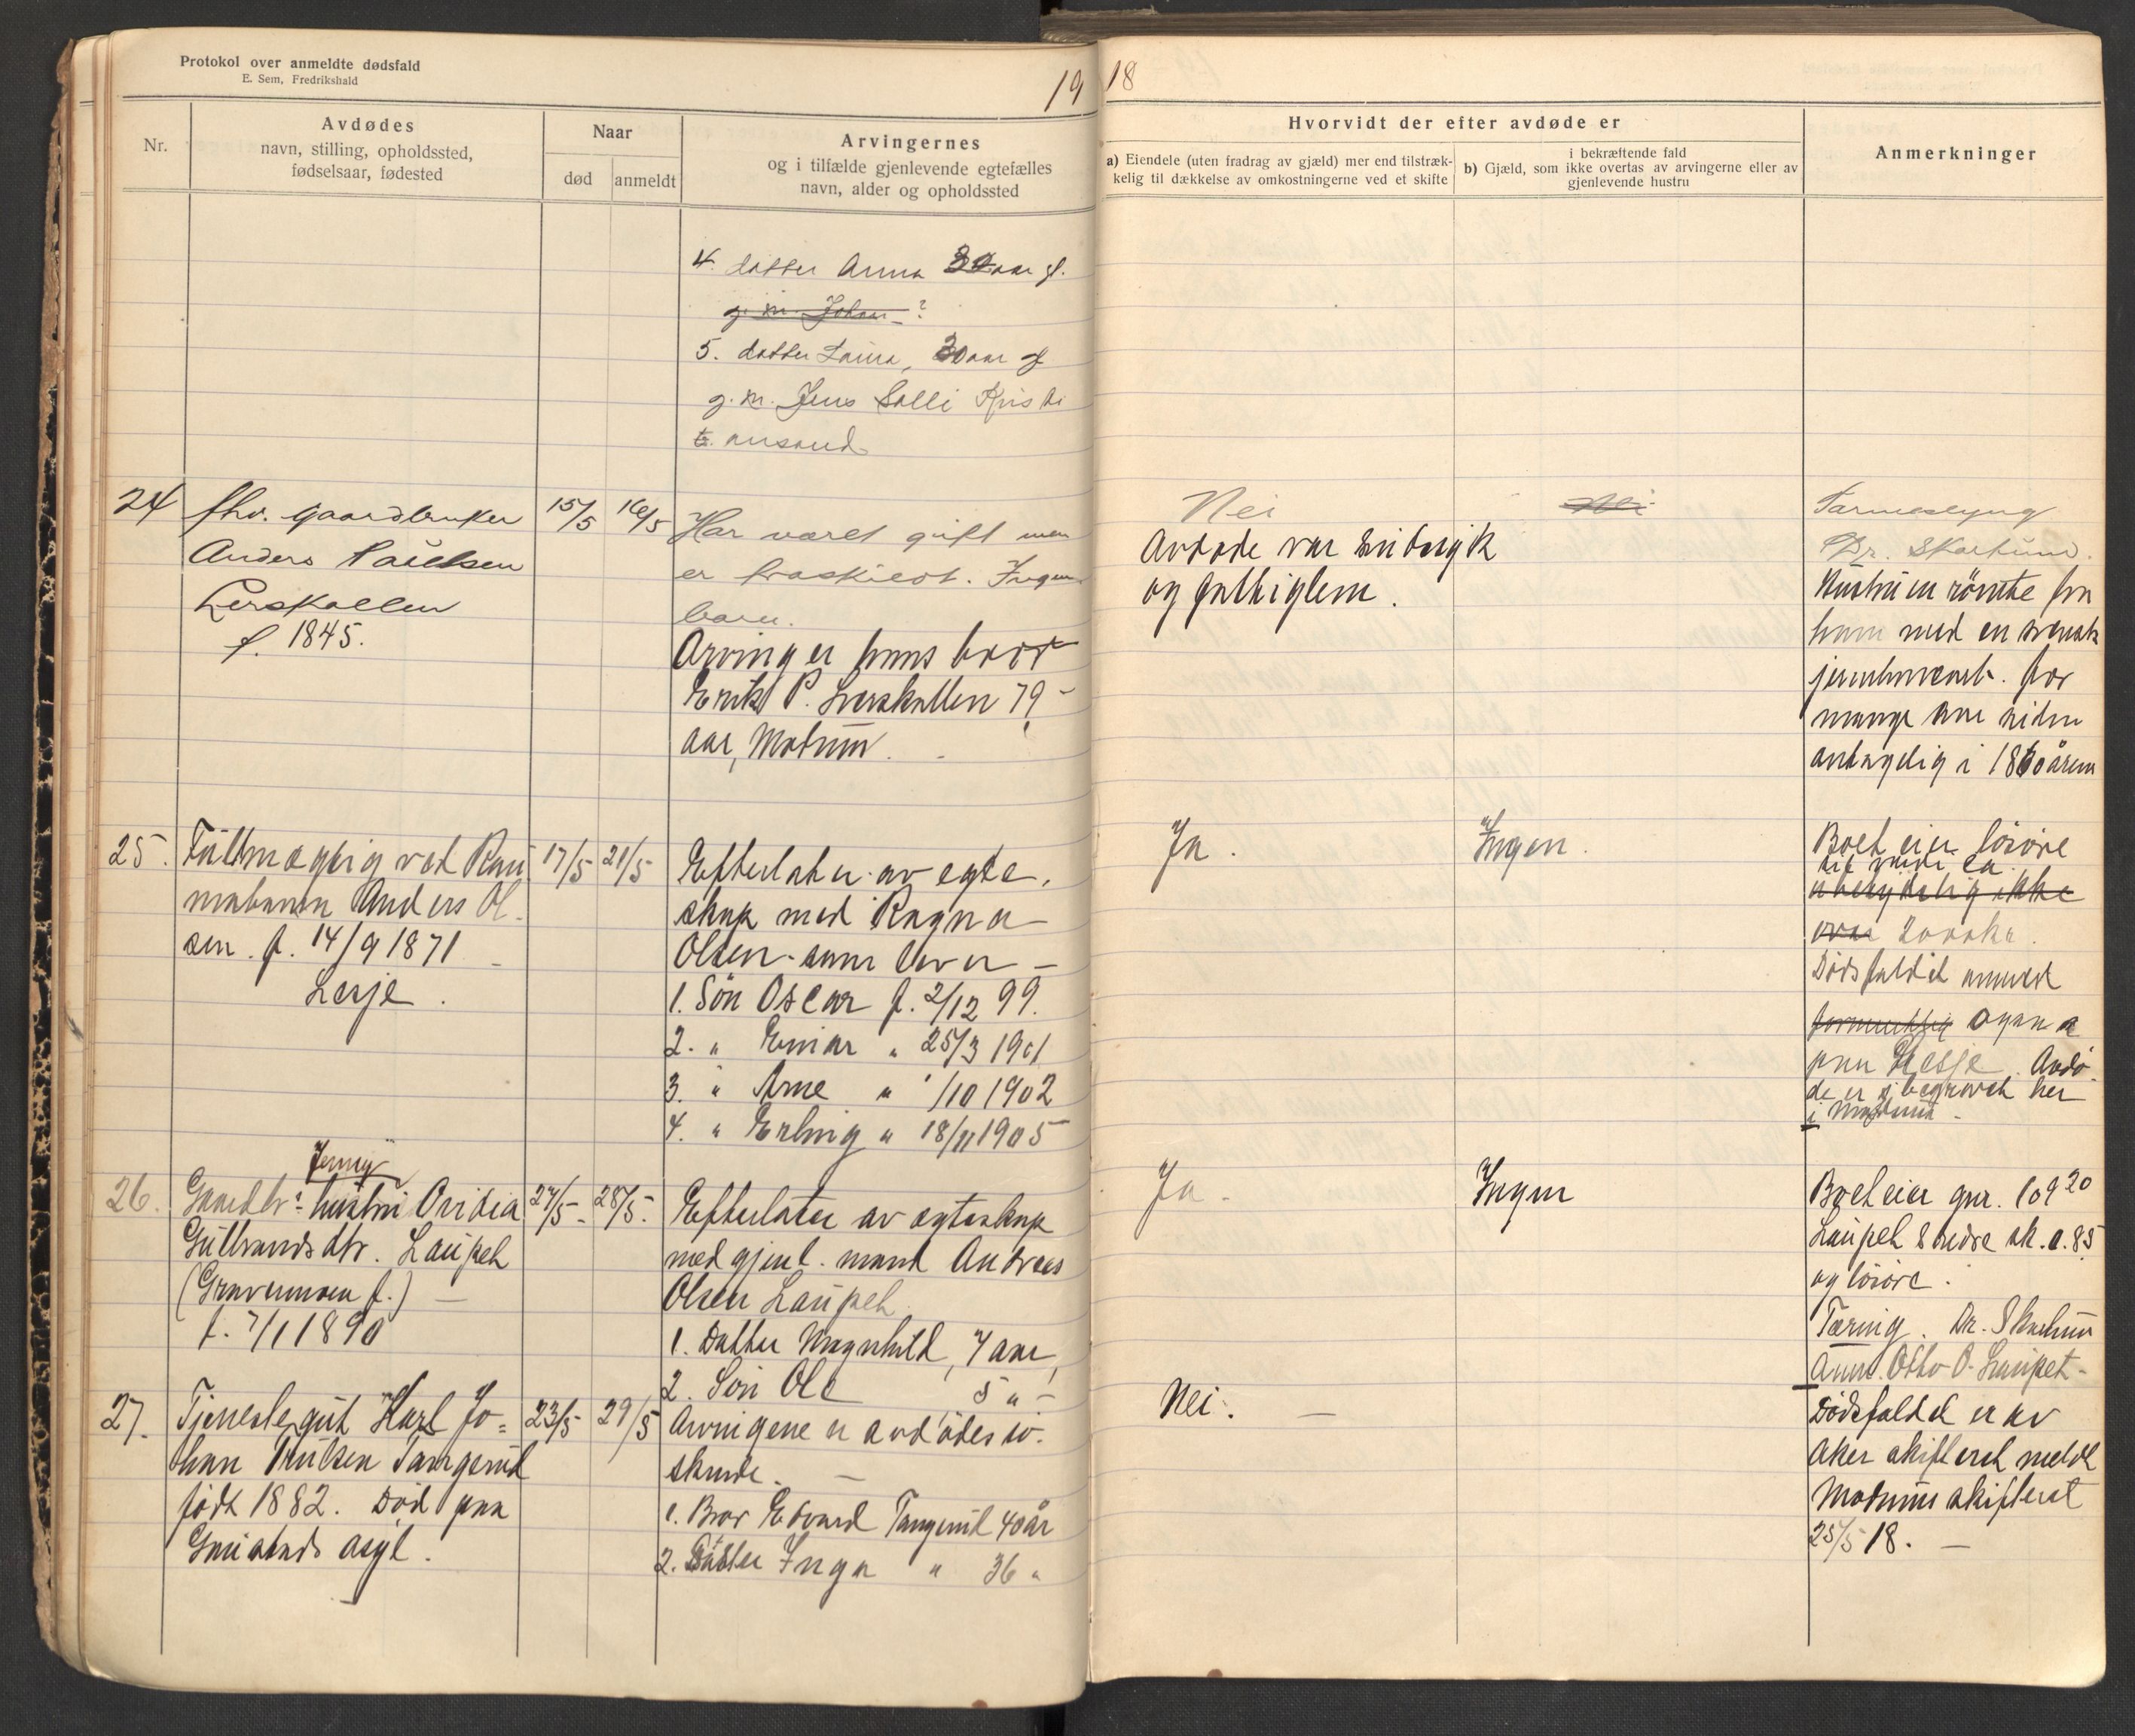 Protokol over anmeldte dødsfald
E. Sem, Fredrikshald
19 18
Nr.
Avdødes
navn, stilling, opholdssted,
fødselsaar, fødested
Naar
død
anmeldt
Arvingernes
og i tilfælde gjenlevende egtefælles
navn, alder og opholdssted
Hvorvidt der efter avdøde er
a) Eiendele (uten fradrag av gjæld) mer end tilstræk-
kelig til dækkelse av omkostningerne ved et skifte
i bekræftende fald
b) Gjæld, som ikke overtas av arvingerne eller av
gjenlevende hustru
Anmerkninger
4. datter Anna aar gl.
g. m. Johan ?
5. datter Laura, 30 aar gl
g. m. Jens Solli Kristi
ansand
24
fhv. gaardbruker
Anders Paulsen
Lerskallen
f. 1845.
15/5
16/5
Har været gift men
er fraskilt. Ingen
barn.
Arving er hans bror
Erik P. Lerskallen 79
aar, Modum.
Nei
Avdøde var sindssyk
og fattiglem.
Nei
Tarmeslyng
Dr. Skartum.
Hustruen rømte fra
ham med en svensk
for
mange aar siden
antagelig i 1860 årene
25.
Fuldmægtig ved Rau
mabanen Anders Ol-
sen. f. 14/9 1871
Lesje.
17/5
21/5
Efterlater av egte-
skap med Ragna
Olsen som lever -
1. Søn Oscar f. 2/12 99.
2. " Einar " 25/3 1901
3. " Arne " /10 1902
4. " Erling " 18/11 1905
Ja.
Ingen.
Boet eier løsøre
til værdi ca.
ubetydelig ikke
over 2000 kr.
Dødsfaldet anmeldt
ogsaa
paa Lesje. Avdø-
de er begravet her
i Modum -
26.
Jenny
Gaardbr. hustru Ovidia
Gulbrandsdtr. Laupet
(Gravermoen f.) -
f. 7/1 1890
27/5
28/5.
Efterlater av egteskap
med gjenl. mand Andreas
Olsen Laupet
1. Datter Magnhild, 7 aar,
2. Søn Ole 5 " -
Ja -
Ingen
Boet eier gnr. 109 20
Laupet søndre sk. 0.85
og løsøre.
Tæring. Dr. Skartum
Anm. Otto O. Laupet -
27.
Tjenestegut Karl Jo=
han Knutsen Tangerud
født 1882. Død paa
Gaustads asyl.
23/5
29/5
Arvingene er avdødes sø-
skende. -
1. Bror Edvard Tangerud 40 år
2. Søster Inga " 36 "
Nei. -
Dødsfaldet er av
Aker skifteret meldt
Modums skifteret
25/5 18. -